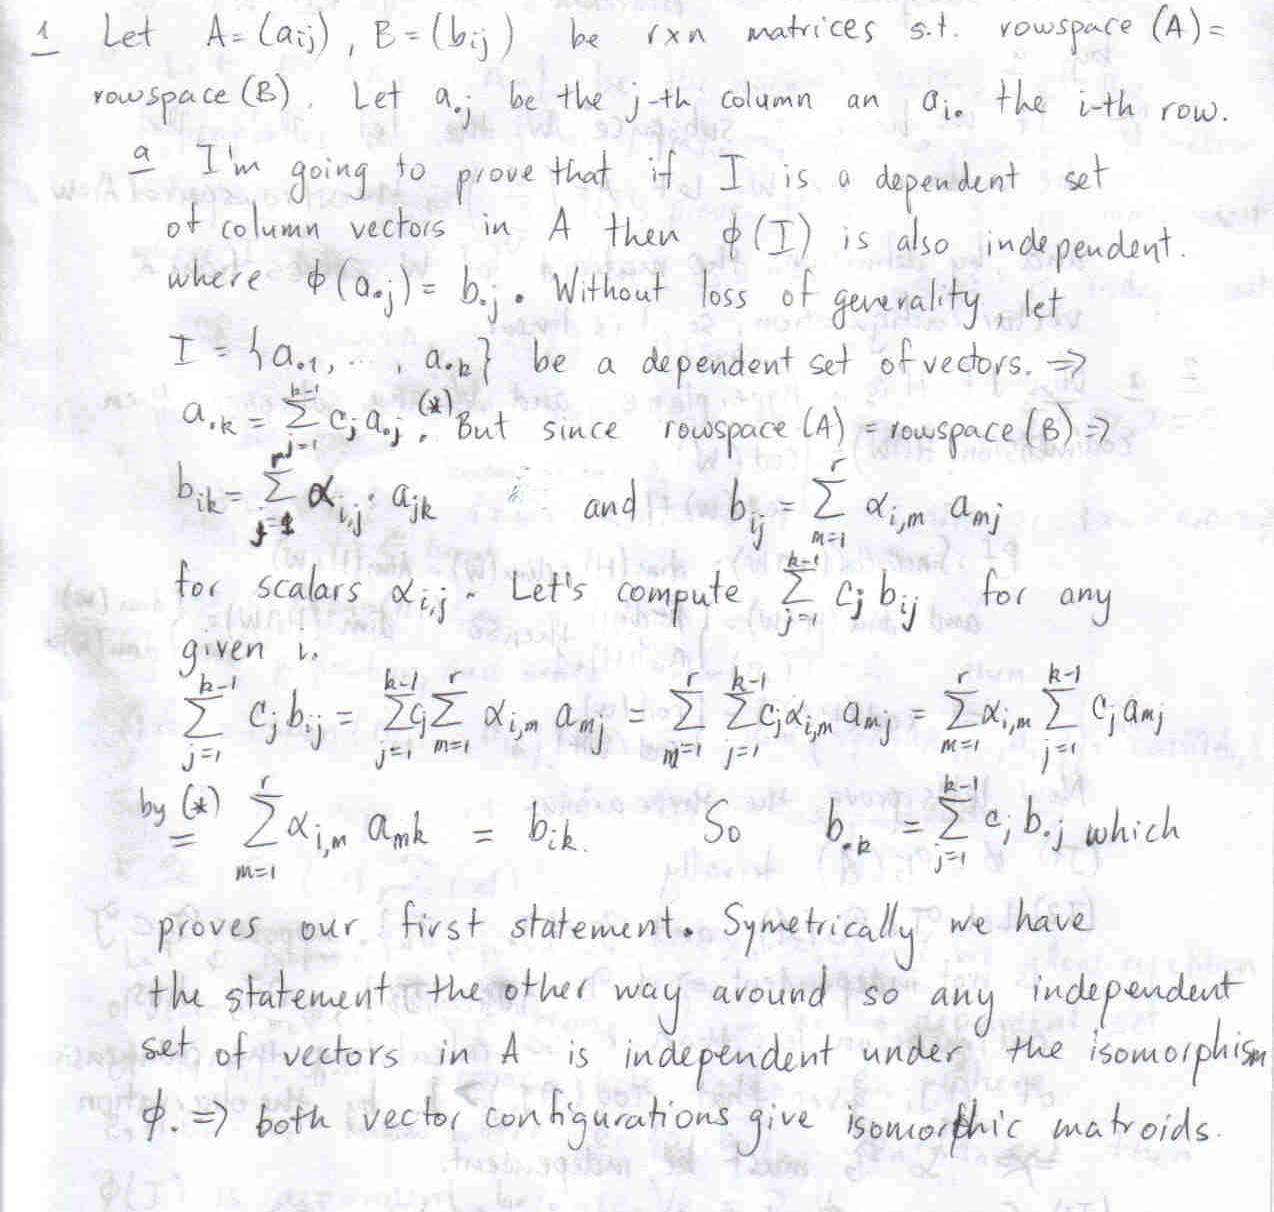 1 Let A=(aij), B=(bij) be r×n matrices s.t. rowspace (A)=
rowspace (B). Let a.j be the j-th column an ai. the i-th row.
a I'm going to prove that if I is a dependent set
of column vectors in A then ϕ(I) is also independent.
where ϕ(a.j)= b.j. Without loss of generality, let
I = {a.1, ..., a.k} be a dependent set of vectors. ⇒
a.k = ∑_{j=1}^{k-1} cj a.j (*). But since rowspace (A) = rowspace (B) ⇒
bik = ∑_{j=1}^{r} αi,j · ajk and bij = ∑_{m=1}^{r} αi,m amj
for scalars αi,j. Let's compute ∑_{j=1}^{k-1} cj bij for any
given i.
∑_{j=1}^{k-1} cj bij = ∑_{j=1}^{k-1} cj ∑_{m=1}^{r} αi,m amj = ∑_{m=1}^{r} ∑_{j=1}^{k-1} cj αi,m amj = ∑_{m=1}^{r} αi,m ∑_{j=1}^{k-1} cj amj
by (*) = ∑_{m=1}^{r} αi,m amk = bik. So b.k = ∑_{j=1}^{k-1} cj b.j which
proves our first statement. Symetrically we have
the statement the other way around so any independent
set of vectors in A is independent under the isomorphism
ϕ. ⇒ both vector configurations give isomorphic matroids.